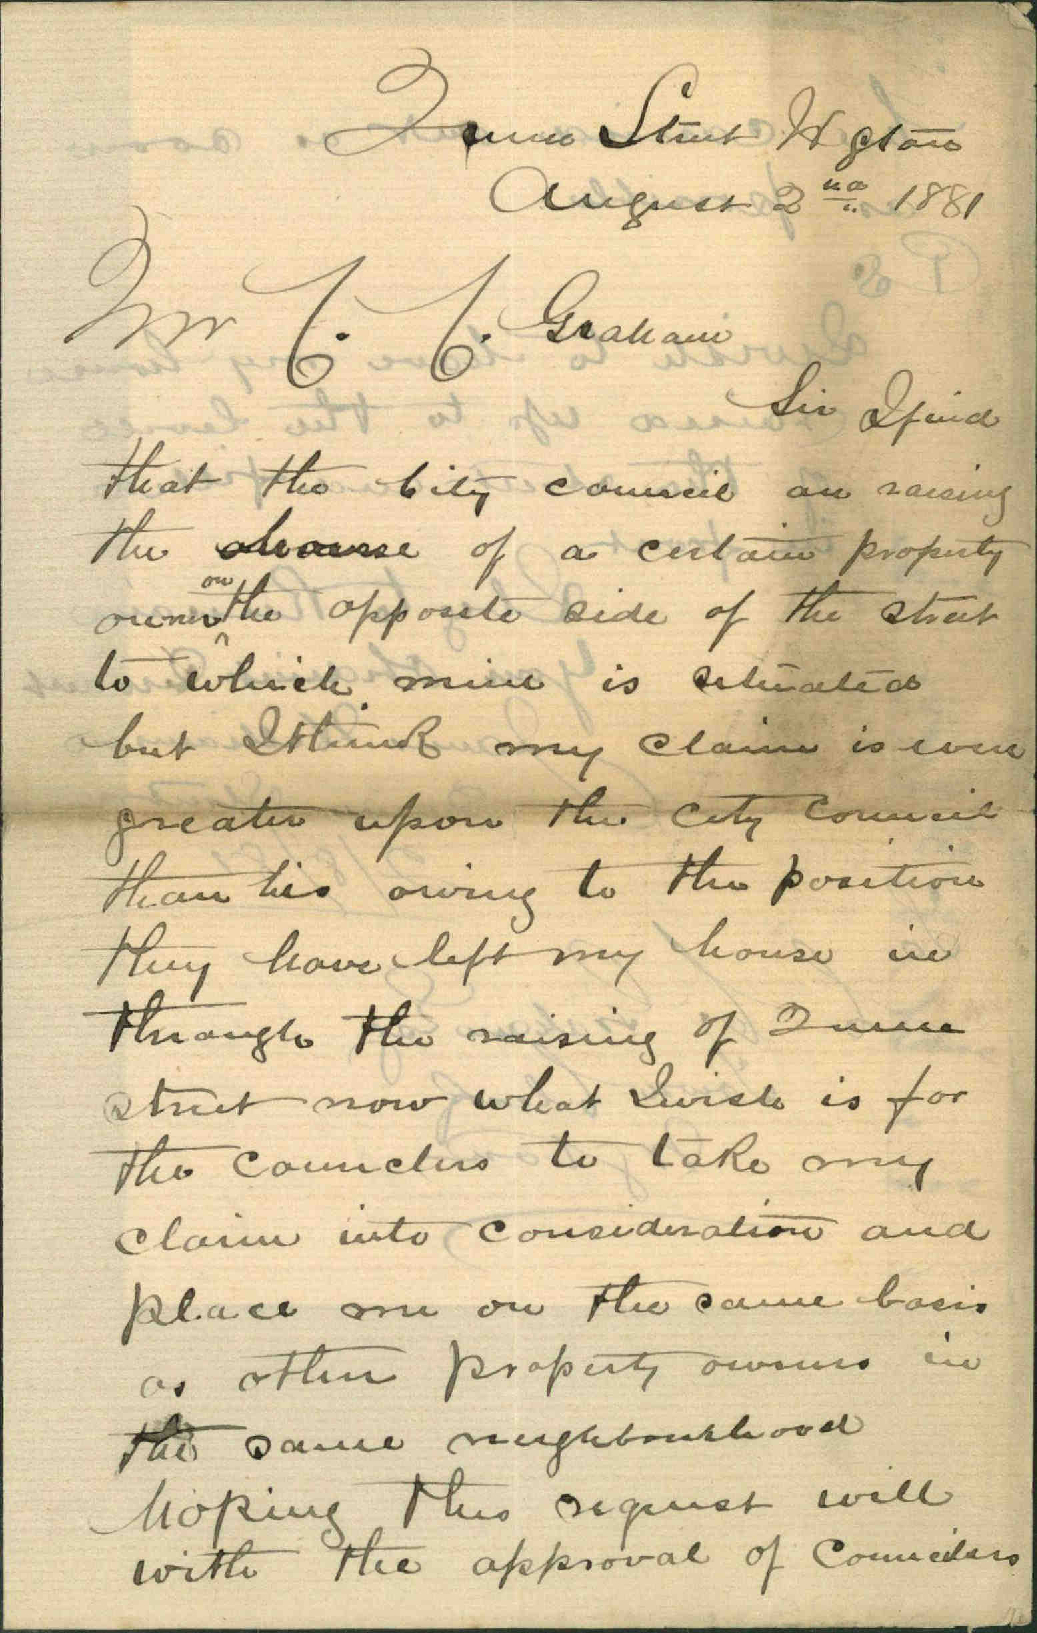 Street Wgton
August 2nd 1881
Mr C. C. Graham
Sir I find
that the City council an raising
the house of a certain property
owner on the opposite side of the street
to which mine is situated
but I think my claim is even
greater upon the city council
than his owing to the position
they have left my house in
through the raising of
street now what I wish is for
the Councilers to take my
claim into consideration and
place me on the same basis
as other property owners in
the same neighbourhood
hoping this request will
with the approval of Councilers